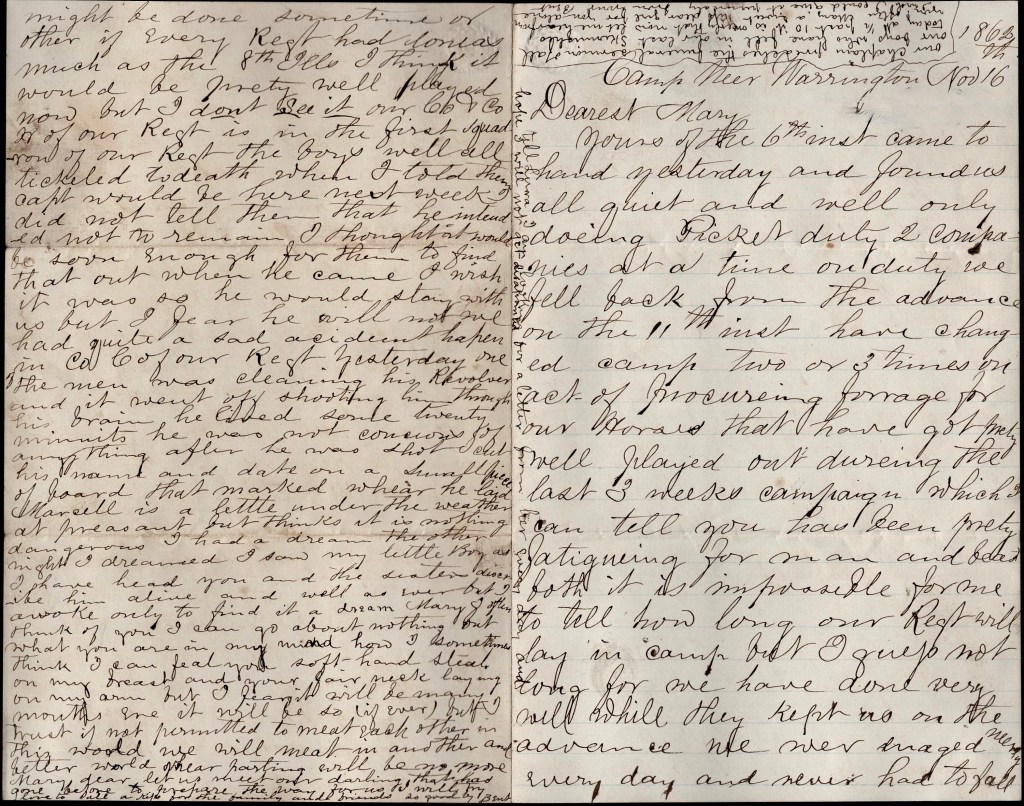 1862
Camp Near Warrington Nov 16th
Dearest Mary
Yours of the 6th inst came to
hand yesterday and found us
all quiet and well only
doeing Picket duty 2 compa-
nies at a time on duty we
fell back from the advance
on the 11th inst have chang-
ed camp two or 3 times on
act of procureing forrage for
our Horses that have got prety
well played out dureing the
last 3 weeks campaign which I
can tell you has been prety
fatigueing for man and beast
both it is impossible for me
to tell how long our Regt will
lay in camp but I guess not
long for we have done very
well while they kept us on the
advance we wer engaged nearly
every day and never had to fall
might be done sometime or
other if every Regt had don as
much as the 8th Ills I think it
would be prety well played
now but I dont see it our Co & Co
of our Regt is in the first squad
ron of our Regt the boys well all
tickeled to death when I told them
capt would be here next week I
did not tell them that he intend
ed not to remain I thought it would
be soon enough for them to find
that out when he came I wish
it was so he would stay with
us but I fear he will not we
had quite a sad acident hapen
in Co G of our Regt yesterday one
the men was cleaning his Revolver
and it went off shooting him through
his brain he lived some twenty
minuits he was not concious of
anything after he was shot I cut
his name and date on a small piece
of board that marked whear he laid
Marcell is a little under the weather
at preasant but thinks it is nothing
dangerous I had a dream the other
night I dreamed I saw my little boy as
I have head you and the sisters discr
ibe him alive and well as ever but I
awoke only to find it a dream Mary I often
think of you I can go about nothing but
what you are in my mind how I sometimes
think I can feal your soft hand steal
on my breast and your fair neck laying
on my arm but I fear it will be many
months ere it will be so (if ever) but I
trust if not permitted to meat each other in
this world we will meat in another and
better world whear parting will be no more
Mary dear let us meet our darling that has
gone before to prepare the way for us I will try
for the family and friends so good by Bent